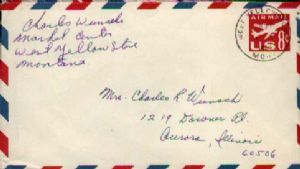 Charles Wunsch
Market Center
West Yellow Stone
Montana
WEST YELLOWSTONE
MONT.
AIR MAIL
US 8¢
Mrs. Charles R Wunsch
1219 Downer Pl.
Aurora, Illinois
60506